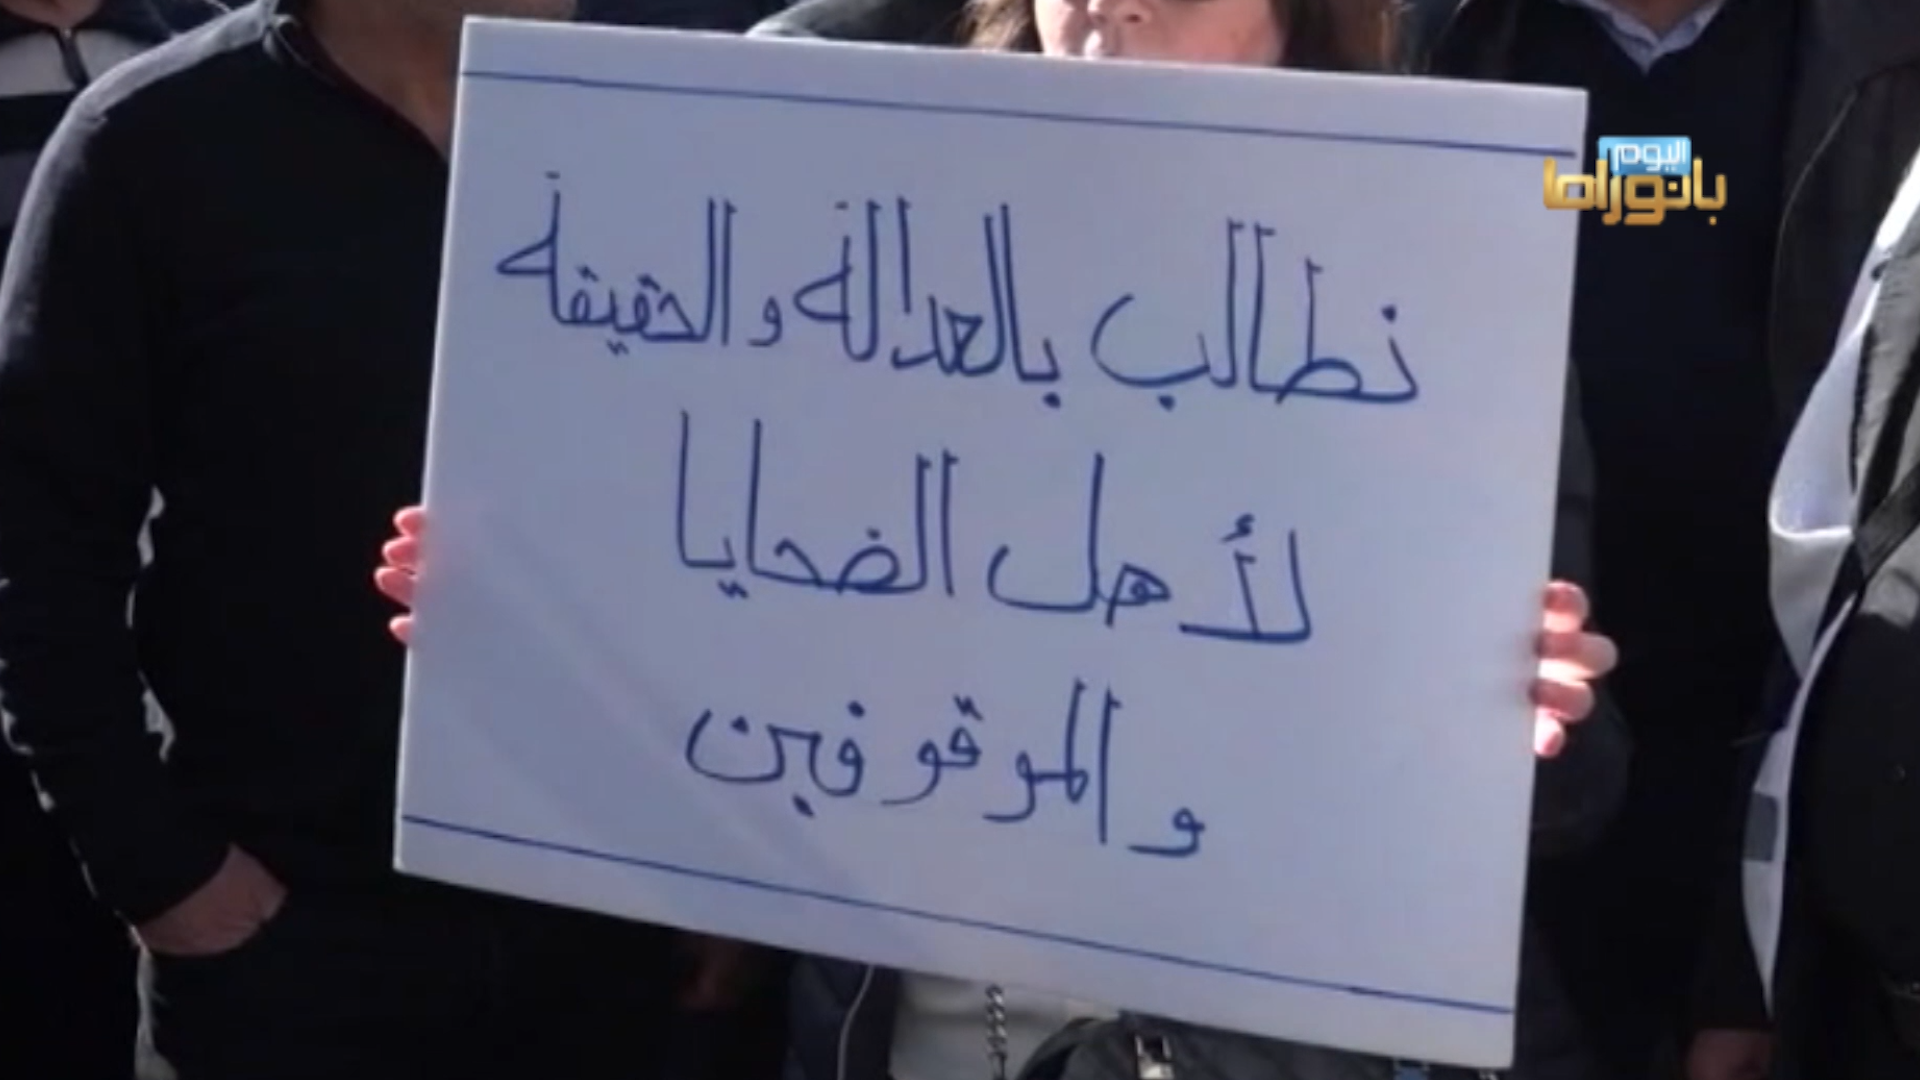 نطالب بالعدالة والحقيقة
لأهل الضحايا
والموقوفين
اليوم
بانوراما